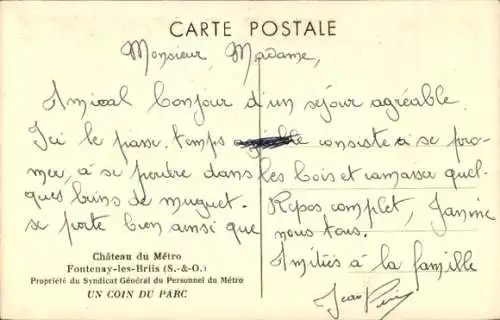 CARTE POSTALE
Monsieur, Madame,
Amical bonjour d'un séjour agréable.
Ici le passe-temps consiste à se pro-
mener, à se perdre dans les bois et ramasser quel-
ques brins de muguet. Repos complet, Janine
se porte bien ainsi que nous tous.
Amitiés à la famille
Château du Métro
Fontenay-les-Briis (S.-&-O.)
Propriété du Syndicat Général du Personnel du Métro
UN COIN DU PARC
Jean